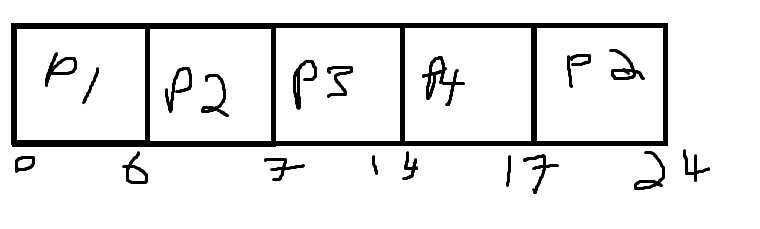 P1 P2 P3 P4 P2
0 6 7 14 17 24